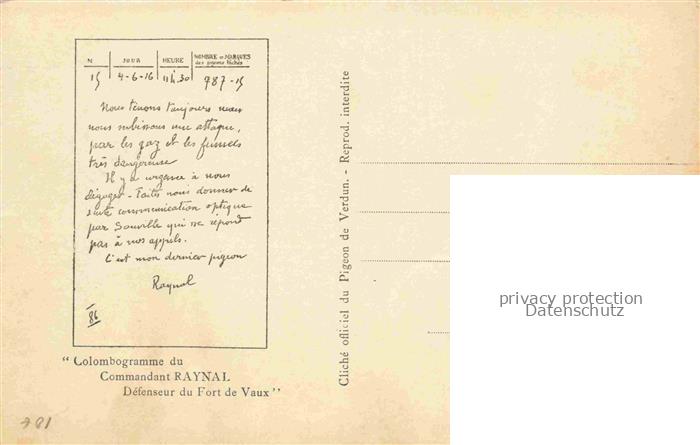 N | JOUR | HEURE | NOMBRE et MARQUES
des pigeons lâchés
15 | 4-6-16 | 11h.30 | 787-15
Nous tenons toujours mais
nous subissons une attaque,
par les gaz et les fumées
très dangereuse
Il y a urgence à nous
dégager - Faites nous donner de
suite communication optique
par Souville qui ne répond
pas à nos appels.
C'est mon dernier pigeon
Raynal
86
"Colombogramme du
Commandant RAYNAL
Défenseur du Fort de Vaux"
Cliché officiel du Pigeon de Verdun. - Reprod. interdite
privacy protection
Datenschutz